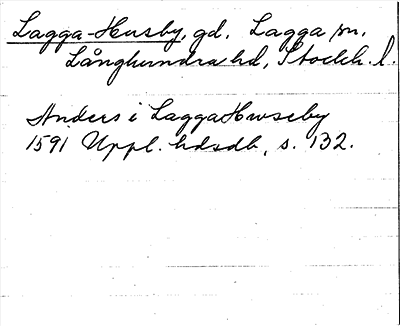 Lagga-Husby, gd. Lagga sn.
Långhundra hd, Stockh. l.
Anders i Lagga Hwseby
1591 Uppl. hdsdb, s. 132.